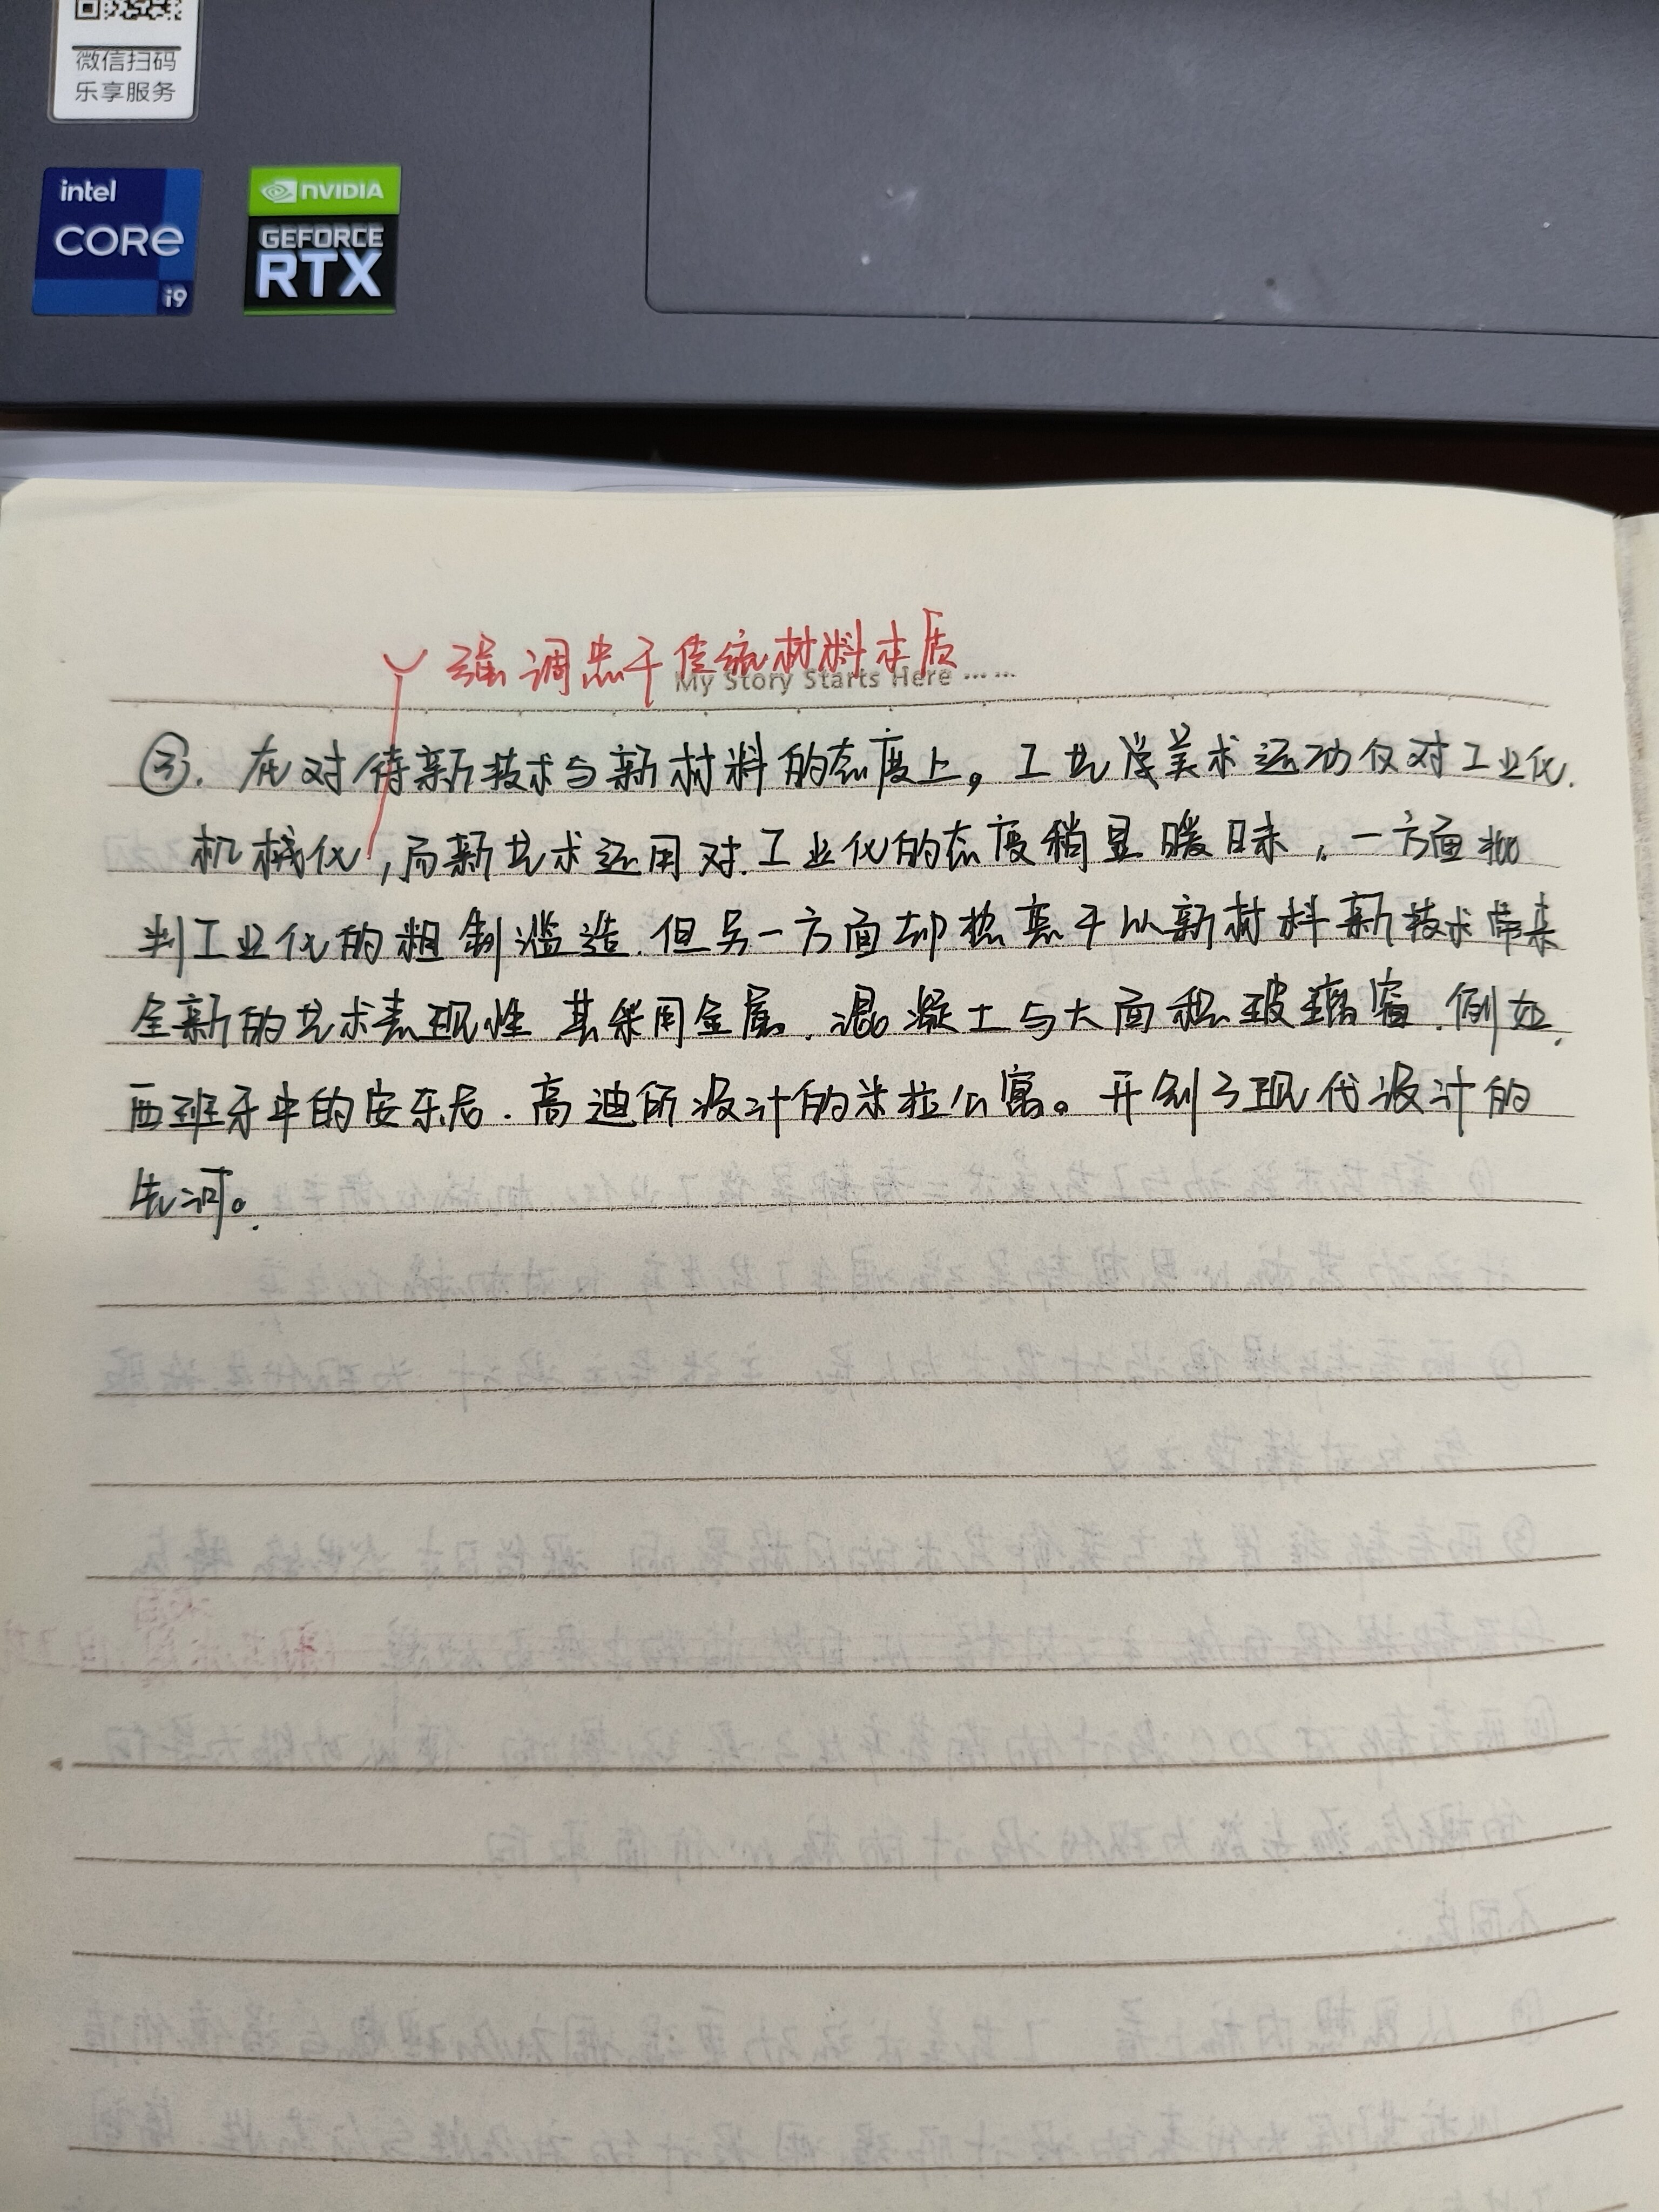 微信扫码
乐享服务
intel
CORE
i9
NVIDIA
GEFORCE
RTX
强调忠于传统材料本质
My Story Starts Here ……
③. 在对待新技术与新材料的态度上，工艺美术运动仅对工业化.
机械化，而新艺术运用对工业化的态度稍显暖昧，一方面批
判工业化的粗制滥造.但另一方面却热衷于以新材料新技术带来
全新的艺术表现性 其采用金属.混凝土与大面积玻璃窗.例如.
西班牙中的安东尼.高迪所设计的米拉公寓。开创了现代设计的
先河。